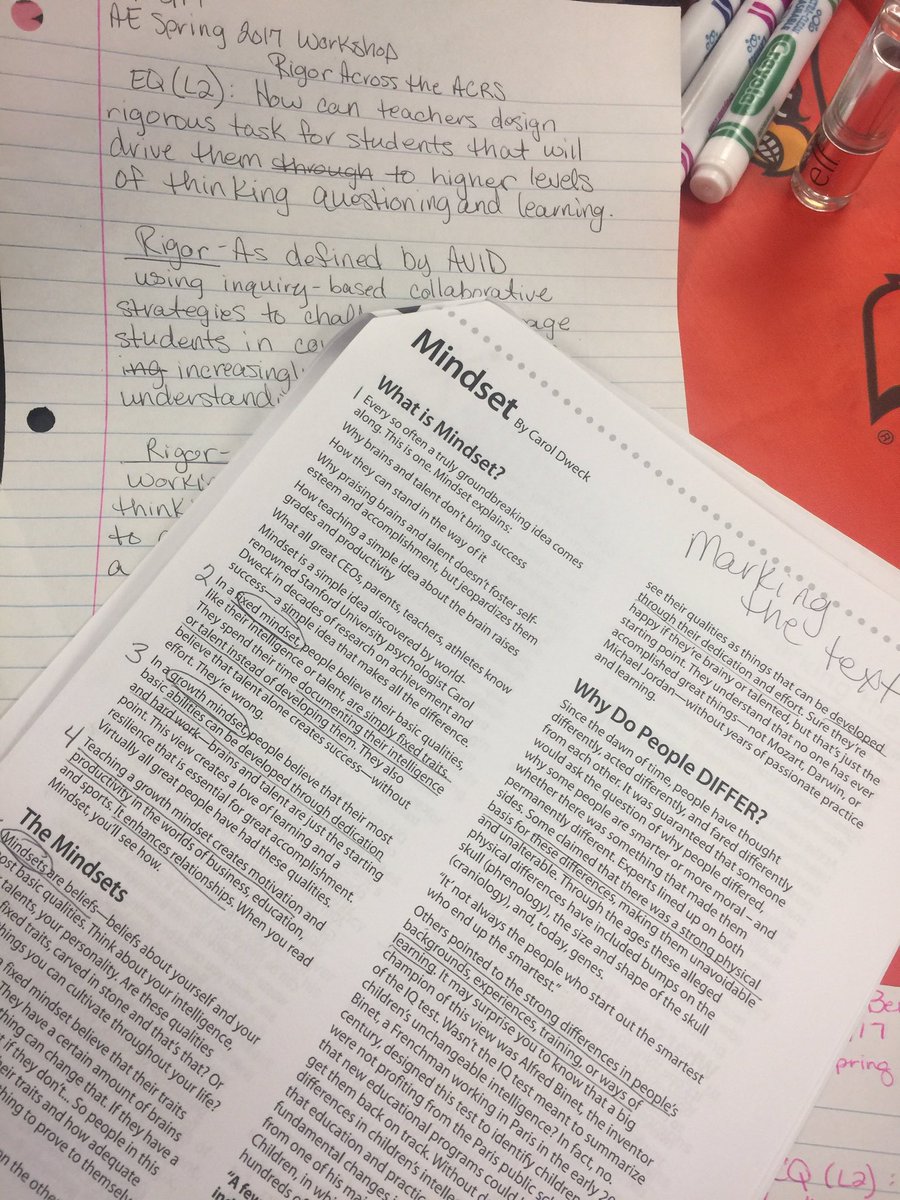 AE Spring 2017 Workshop
Rigor Across the ACRS
EQ (L2): How can teachers design
rigorous task for students that will
drive them through to higher levels
of thinking questioning and learning.
Rigor - As defined by AVID
using inquiry-based collaborative
strategies to
students in
ing
Rigor -
to
a
Crayola
elf
®
Mindset By Carol Dweck
What is Mindset?
1 Every so often a truly groundbreaking idea comes
along. This is one. Mindset explains:
Why brains and talent don't bring success
How they can stand in the way of it
Why praising brains and talent doesn't foster self-
esteem and accomplishment, but jeopardizes them
How teaching a simple idea about the brain raises
grades and productivity
What all great CEOs, parents, teachers, athletes know
Mindset is a simple idea discovered by world-
renowned Stanford University psychologist Carol
Dweck in decades of research on achievement and
success—a simple idea that makes all the difference.
2 In a fixed mindset, people believe their basic qualities,
like their intelligence or talent, are simply fixed traits.
They spend their time documenting their intelligence
or talent instead of developing them. They also
believe that talent alone creates success—without
effort. They're wrong.
3 In a growth mindset, people believe that their most
basic abilities can be developed through dedication
and hard work—brains and talent are just the starting
point. This view creates a love of learning and a
resilience that is essential for great accomplishment.
Virtually all great people have had these qualities.
4 Teaching a growth mindset creates motivation and
productivity in the worlds of business, education,
and sports. It enhances relationships. When you read
Mindset, you'll see how.
The Mindsets
Mindsets are beliefs—beliefs about yourself and your
most basic qualities. Think about your intelligence,
talents, your personality. Are these qualities
fixed traits, carved in stone and that's that? Or
things you can cultivate throughout your life?
a fixed mindset believe that their traits
They have a certain amount of brains
thing can change that. If they have a
if they don't... So people in this
their traits and how adequate
thing to prove to themselves
on the other
Marking
the text
see their qualities as things that can be developed
through their dedication and effort. Sure they're
happy if they're brainy or talented, but that's just the
starting point. They understand that no one has ever
accomplished great things—not Mozart, Darwin, or
Michael Jordan—without years of passionate practice
and learning.
Why Do People DIFFER?
Since the dawn of time, people have thought
differently, acted differently, and fared differently
from each other. It was guaranteed that someone
would ask the question of why people differed,
why some people are smarter or more moral – and
whether there was something that made them
permanently different. Experts lined up on both
sides. Some claimed that there was a strong physical
basis for these differences, making them unavoidable
and unalterable. Through the ages these alleged
physical differences have included bumps on the
skull (phrenology), the size and shape of the skull
(craniology), and, today, genes.
"It' not always the people who start out the smartest
who end up the smartest."
Others pointed to the strong differences in people's
backgrounds, experiences, training, or ways of
learning. It may surprise you to know that a big
champion of this view was Alfred Binet, the inventor
of the IQ test. Wasn't the IQ test meant to summarize
children's unchangeable intelligence? In fact, no.
Binet, a Frenchman working in Paris in the early 20
century, designed this test to identify children
were not profiting from the Paris public
that new educational programs could
get them back on track. Without
differences in children's
that education and
fundamental changes
from one of his
Children, in
hundreds of
"A few
17
pring
EQ (L2) :